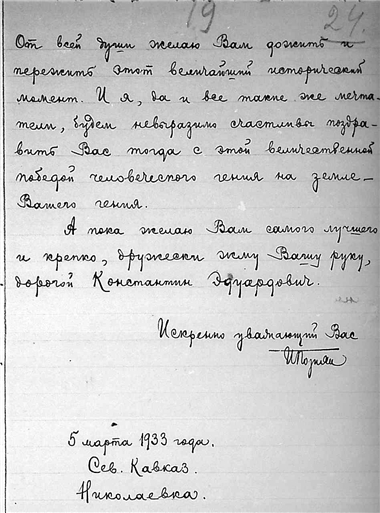 19 24.
От всей души желаю Вам дожить и
пережить этот величайший исторический
момент. И я, да и все такие же мечта-
тели, будем невыразимо счастливы поздра-
вить Вас тогда с этой величественной
победой человеческого гения на земле –
Вашего гения.
А пока желаю Вам самого лучшего
и крепко, дружески жму Вашу руку,
дорогой Константин Эдуардович.
Искренно уважающий Вас
5 марта 1933 года.
Сев. Кавказ.
Николаевка.